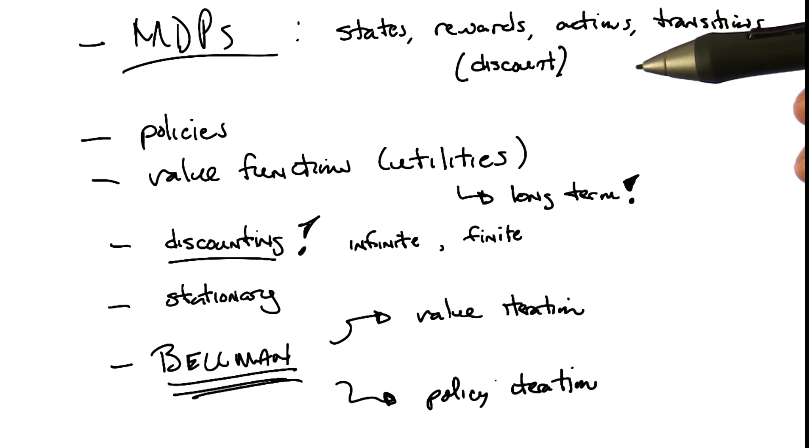 – MDPs : states, rewards, actions, transitions
(discount)
– policies
– value functions (utilities)
↳ long term!
– discounting! infinite, finite
– stationary
– BELLMAN → value iteration
→ policy iteration